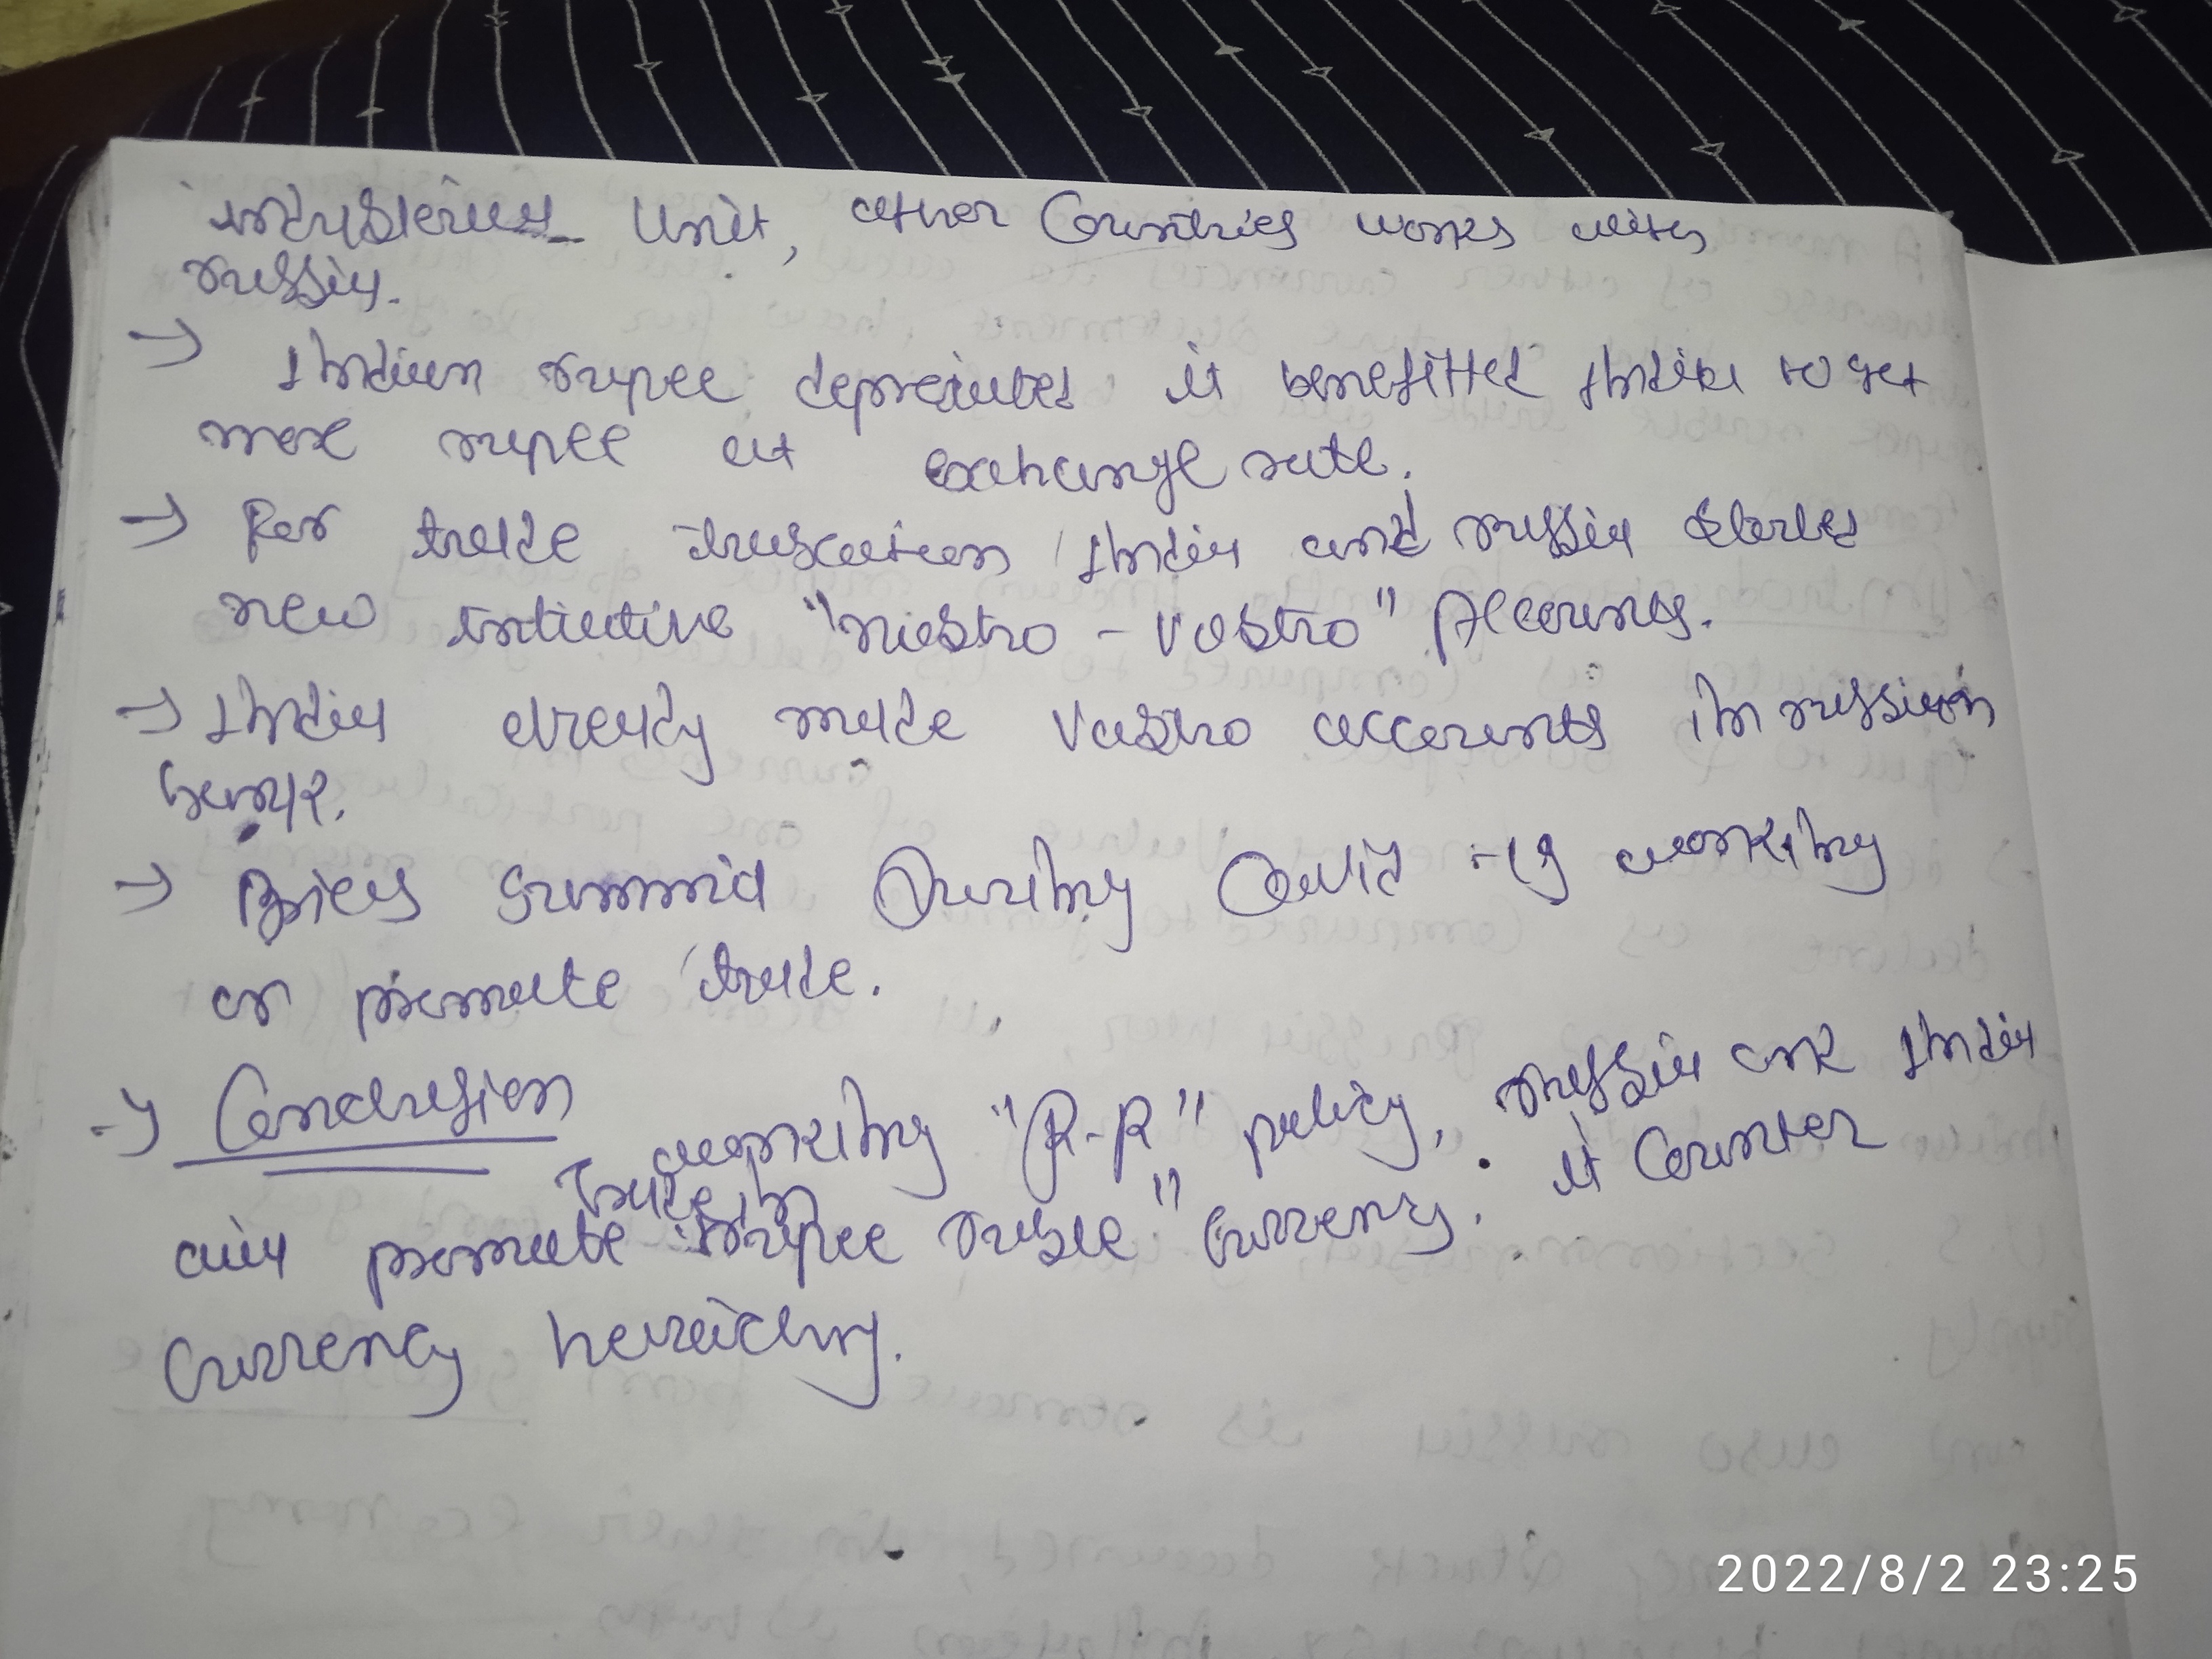 industerial Unit, other Countries works with
russia.
→ Indian rupee depreciated it benefitted India to get
more rupee at exchange rate.
→ For trade trascation India and russia started
new intiative "niostro - Vostro" Accounts.
→ India already made Vastro accounts in russian
bank.
→ Brics Summit During Covid -19 working
on promote trade.
→ Conclusion
working "R-R" policy, russia and India
Trade in
aim promote rupee ruble" Currency. it Counter
Currency heraichay.
2022/8/2 23:25